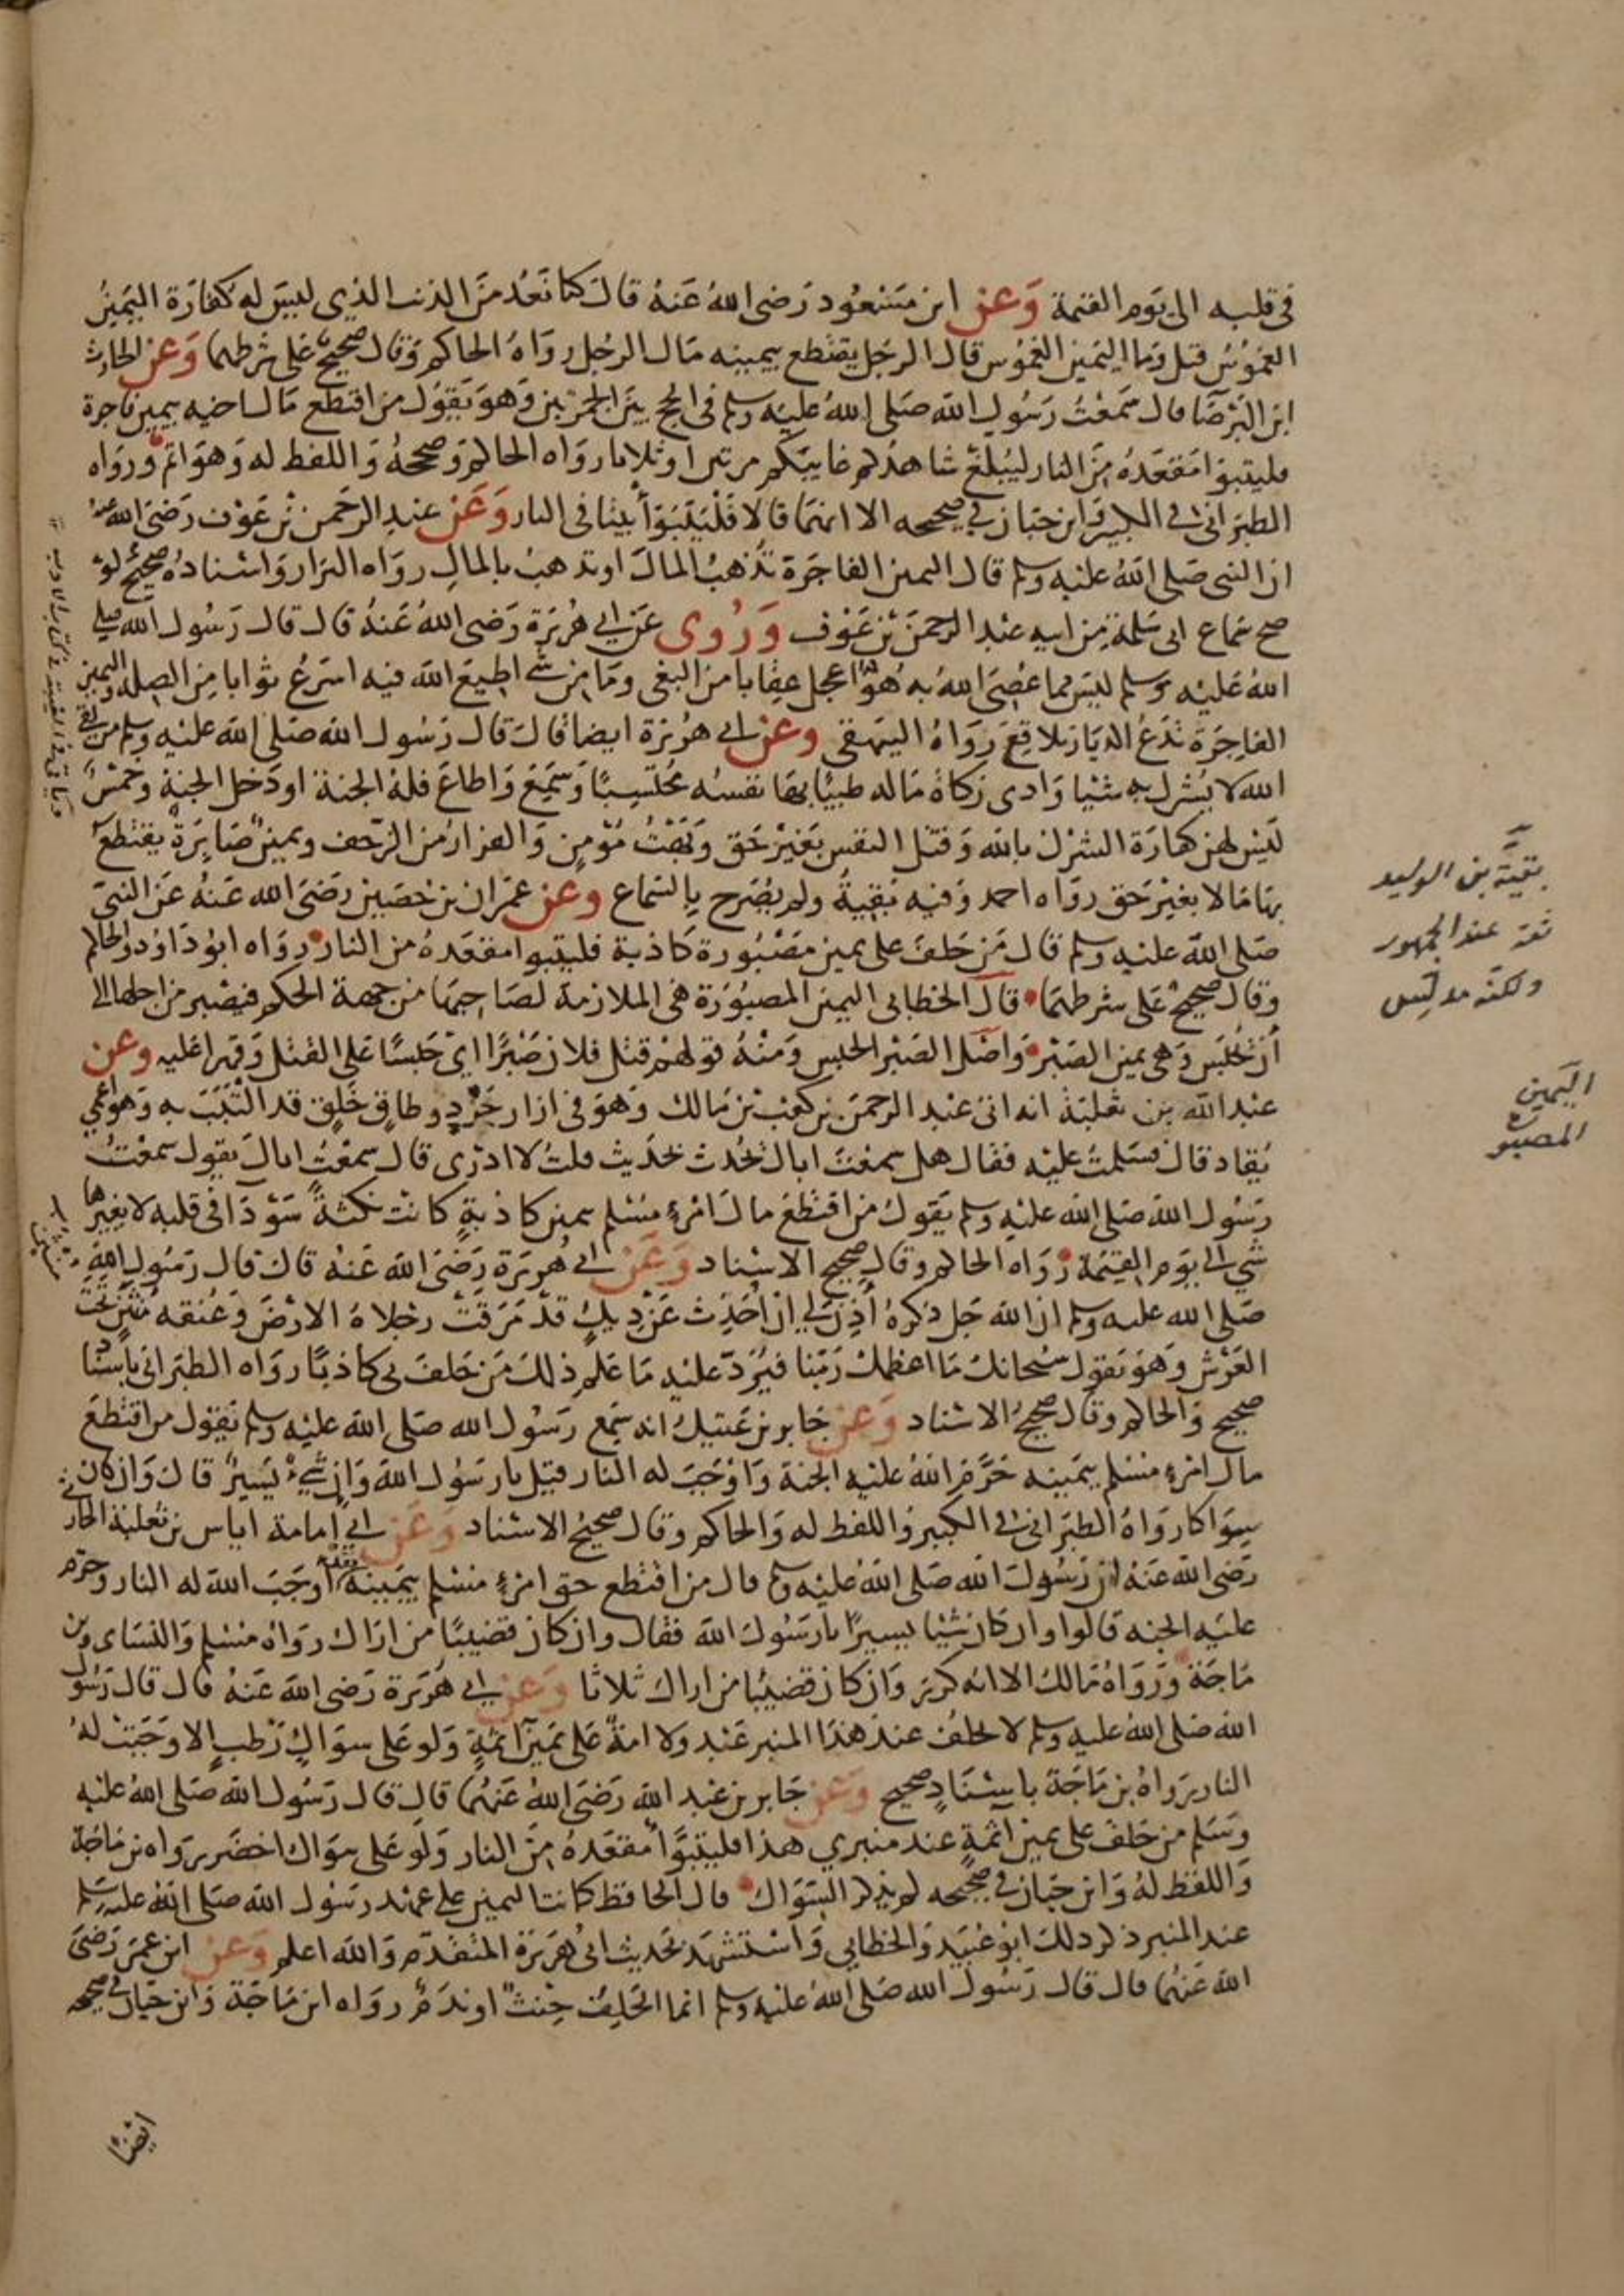 في قلبه الى يوم القيمة وعن ابن مسعود رضى الله عنه قال كنا نعد من الذنب الذي ليس له كفارة اليمين
الغموس قيل وما اليمين الغموس قال الرجل يقتطع بيمينه مال الرجل رواه الحاكم وقال صحيح على شرطهما وعن الحارث
ابن البرصا قال سمعت رسول الله صلى الله عليه وسلم في الحج بين الجمرتين وهو يقول من اقتطع مال اخيه بيمين فاجرة
فليتبوا مقعده من النار ليبلغ شاهدكم غايبكم مرتين او ثلاثا رواه الحاكم وصححه واللفظ له وهو اتم ورواه
الطبراني في الكبير وابن حبان في صحيحه الا انهما قالا فليتبوا بيتا في النار وعن عبد الرحمن بن عوف رضى الله عنه
ان النبى صلى الله عليه وسلم قال اليمين الفاجرة تذهب المال او تذهب بالمال رواه البزار واسناده صحيح لو
صح سماع ابى سلمة من ابيه عبد الرحمن بن عوف وروى عن ابي هريرة رضى الله عنه قال قال رسول الله صلى
الله عليه وسلم ليس مما عصى الله به هو اعجل عقابا من البغى وما من شي اطيع الله فيه اسرع ثوابا من الصلة واليمين
الفاجرة تدع الديار بلاقع رواه البيهقى وعن ابي هريرة ايضا قال قال رسول الله صلى الله عليه وسلم من لقى
الله لا يشرك به شيا وادى زكاة ماله طيبا بها نفسه محتسبا وسمع واطاع فله الجنة او دخل الجنة وخمس
ليس لهن كفارة الشرك بالله وقتل النفس بغير حق وبهت مومن والفرار من الزحف ويمين صابرة يقتطع
بها مالا بغير حق رواه احمد وفيه بقية ولم يصرح بالسماع وعن عمران بن حصين رضى الله عنه عن النبى
صلى الله عليه وسلم قال من حلف على يمين مصبورة كاذبة فليتبوا مقعده من النار رواه ابو داود والحاكم
وقال صحيح على شرطهما قال الخطابى اليمين المصبورة هى الملازمة لصاحبها من جهة الحكم فيصبر من اجلها الى
ان يحبس وهى يمين الصبر واصل الصبر الحبس ومنه قولهم قتل فلان صبرا اى حبسا على القتل وقهرا عليه وعن
عبد الله بن ثعلبة انه اتى عبد الرحمن بن كعب بن مالك وهو في ازار جرد وطاق خلق قد التبب به وهو اعمى
يقاد قال فسلمت عليه فقال هل سمعت اباك يحدث بحديث قلت لا ادرى قال سمعت اباك يقول سمعت
رسول الله صلى الله عليه وسلم يقول من اقتطع مال امرء مسلم بيمين كاذبة كانت نكتة سودا في قلبه لا يغيرها
شي الى يوم القيمة رواه الحاكم وقال صحيح الاسناد وعن ابي هريرة رضى الله عنه قال قال رسول الله
صلى الله عليه وسلم ان الله جل ذكره اذن لي ان احدث عن ديك قد مرقت رجلاه الارض وعنقه مثبت تحت
العرش وهو يقول سبحانك ما اعظمك ربنا فيرد عليه ما علم ذلك من حلف بى كاذبا رواه الطبراني باسناد
صحيح والحاكم وقال صحيح الاسناد وعن جابر بن عتيك انه سمع رسول الله صلى الله عليه وسلم يقول من اقتطع
مال امرء مسلم بيمينه حرم الله عليه الجنة واوجب له النار قيل يا رسول الله وان شيء يسير قال وان كان
سواكا رواه الطبراني في الكبير واللفظ له والحاكم وقال صحيح الاسناد وعن ابي امامة اياس بن ثعلبة الحارثى
رضى الله عنه ان رسول الله صلى الله عليه وسلم قال من اقتطع حق امرء مسلم بيمينه فقد اوجب الله له النار وحرم
عليه الجنه قالوا وان كان شيا يسيرا يا رسول الله فقال وان كان قضيبا من اراك رواه مسلم والنساى وبن
ماجة ورواه مالك الا انه كرر وان كان قضيبا من اراك ثلاثا وعن ابي هريرة رضى الله عنه قال قال رسول
الله صلى الله عليه وسلم لا يحلف عند هذا المنبر عبد ولا امة على يمين اثمة ولو على سواك رطب الا وجبت له
النار رواه بن ماجة باسناد صحيح وعن جابر بن عبد الله رضى الله عنهما قال قال رسول الله صلى الله عليه
وسلم من حلف على يمين اثمة عند منبري هذا فليتبوا مقعده من النار ولو على سواك اخضر رواه بن ماجة
واللفظ له وابن حبان في صحيحه لم يذكر السواك قال الحافظ كانت اليمين على عهد رسول الله صلى الله عليه وسلم
عند المنبر ذكر ذلك ابو عبيد والخطابي واستشهد بحديث ابى هريرة المتقدم والله اعلم وعن ابن عمر رضى
الله عنهما قال قال رسول الله صلى الله عليه وسلم انما الحلف حنث او ندم رواه ابن ماجة وابن حبان في صحيحه
ايضا
بقية بن الوليد
ثقة عند الجمهور
ولكنه مدلس
اليمين
المصبورة